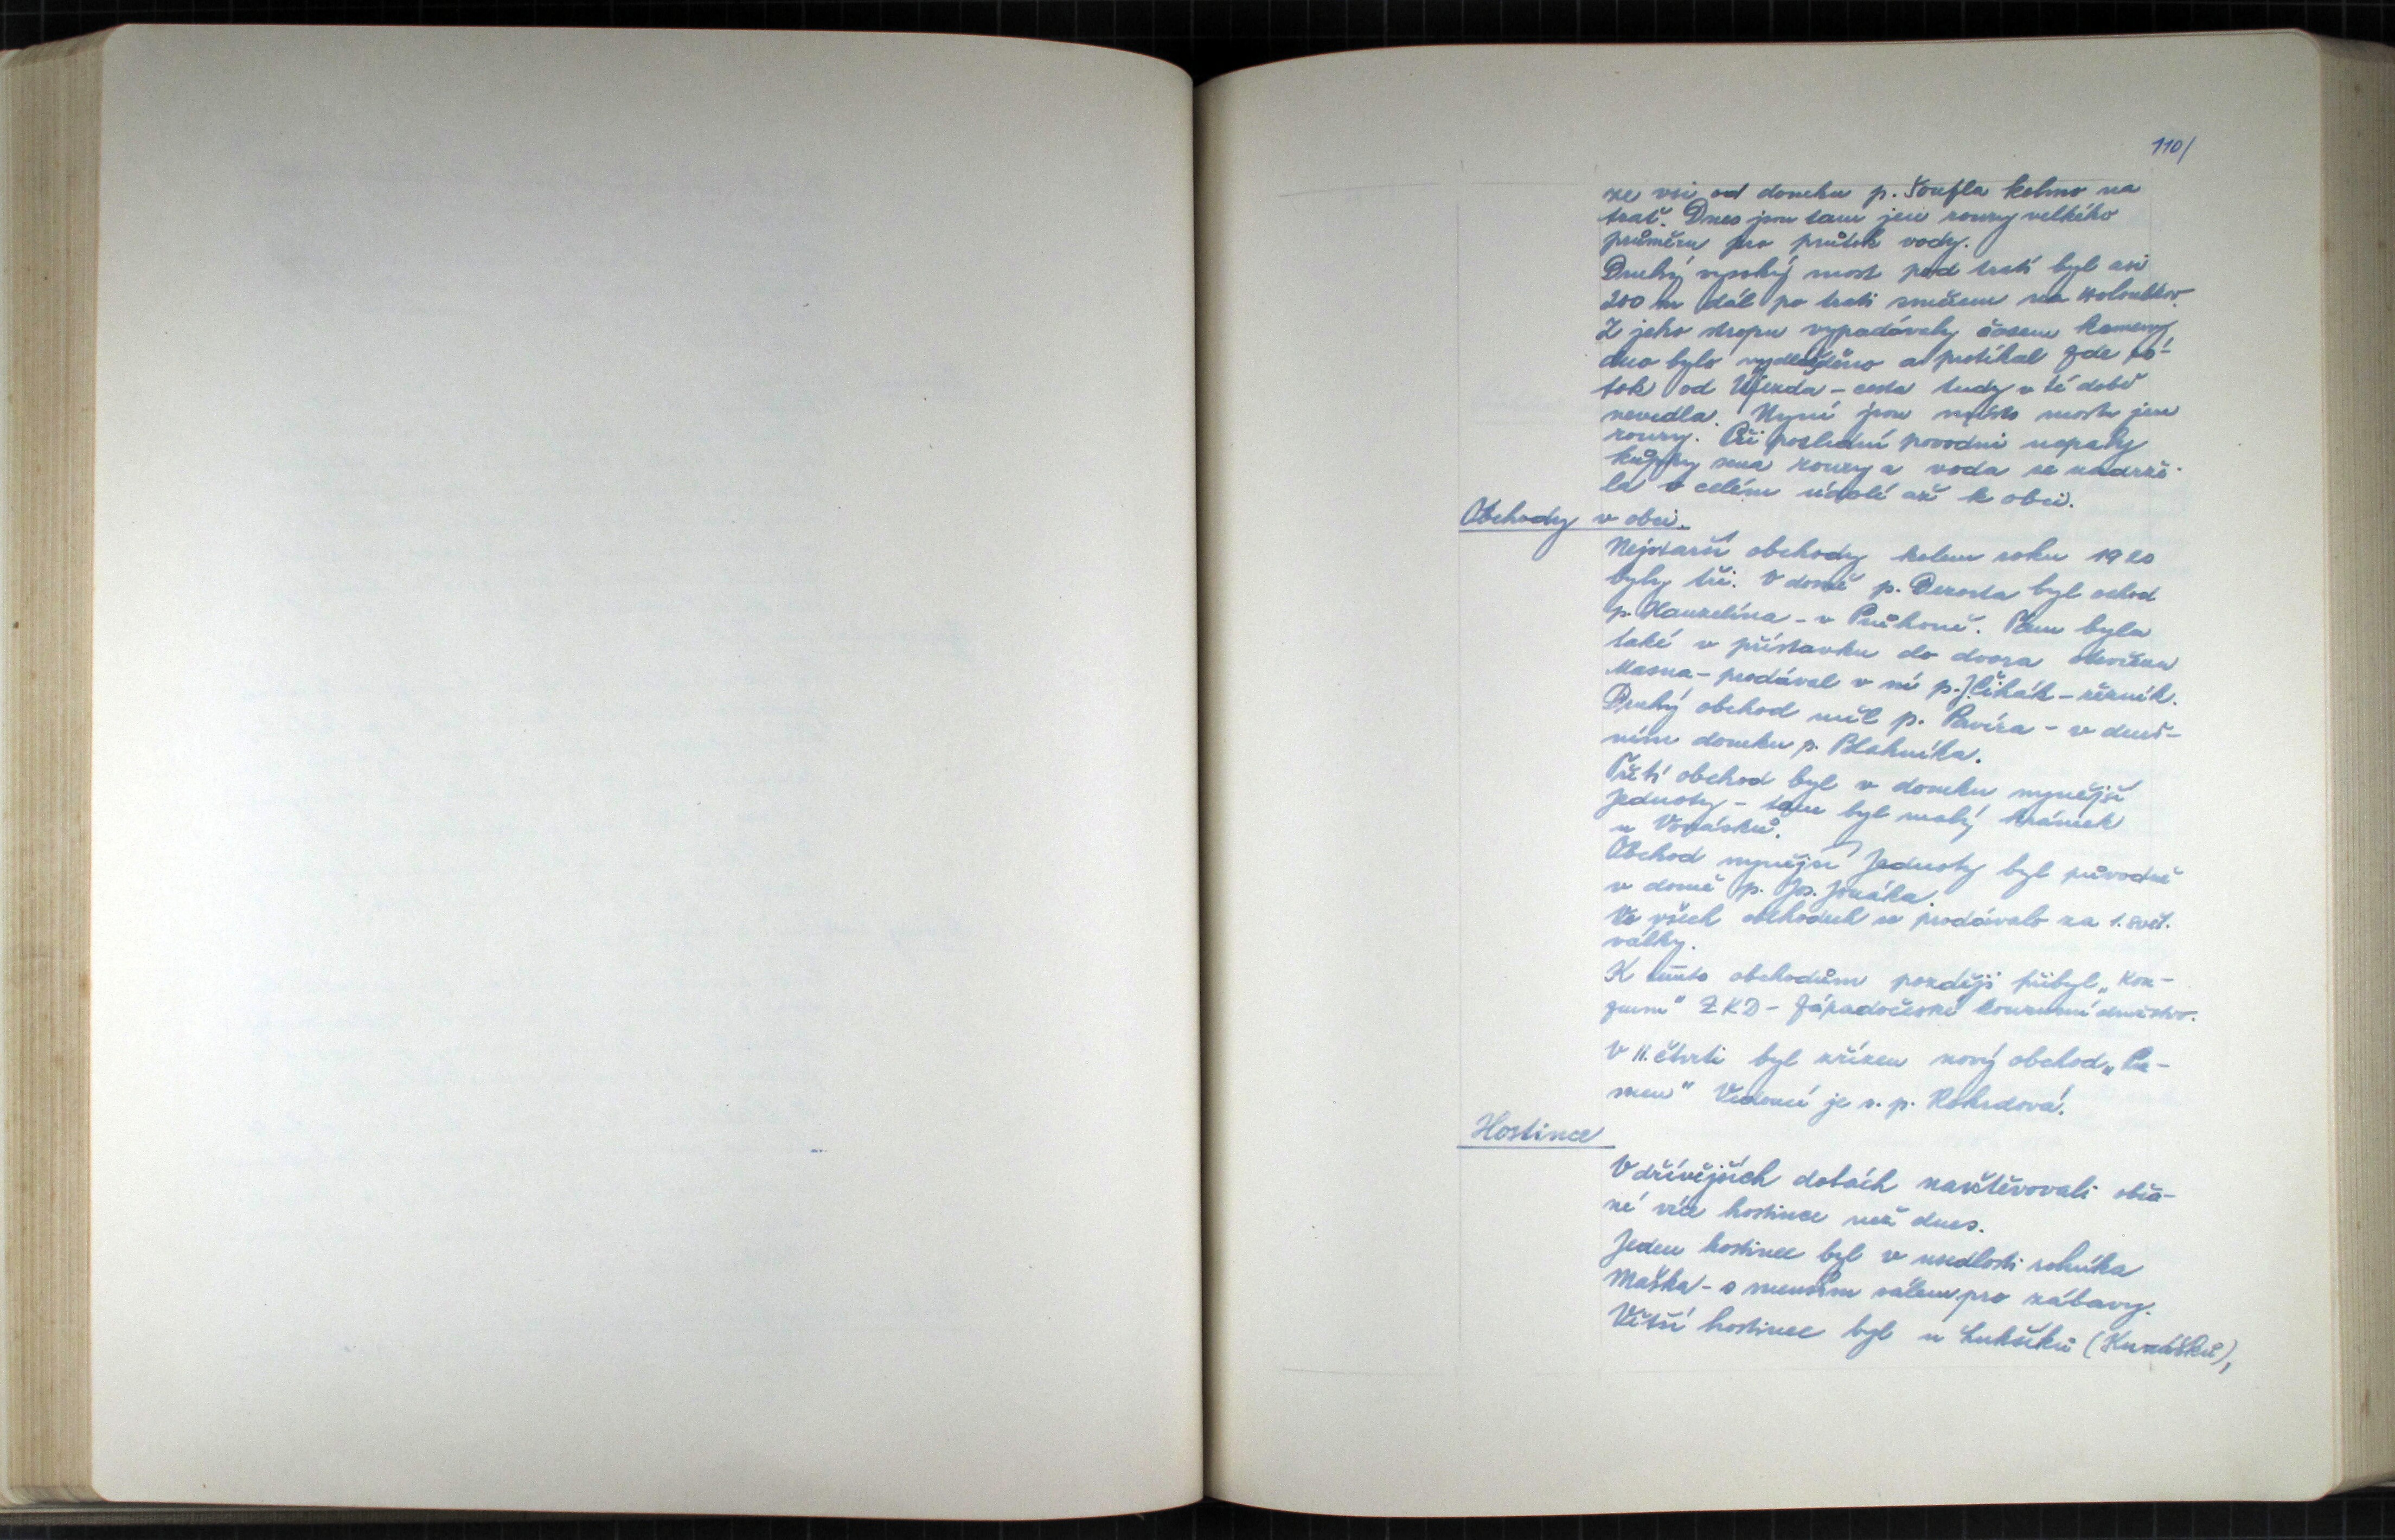 110/
ze vsi od domku p. Toufla kolmo na
trať. Dnes jsou tam jen roury velkého
průměru pro průtok vody.
Druhý vysoký most pod tratí byl asi
200 m dál po trati směrem na Holoubkov.
Z jeho stropu vypadávaly časem kameny
dno bylo vydlážděno a protékal zde po-
tok od Újezda - cesta tudy v té době
nevedla. Nyní jsou místo mostu jen
roury. Při poslední povodni ucpaly
kupky sena roury a voda se nadrže-
la v celém údolí až k obci.
Obchody v obci.
Nejstarší obchody kolem roku 1920
byly tři. V domě p. Derosta byl ochod
p. Hanzelína - v Průhoně. Tam byla
také v přístavku do dvora otevřena
Masna - prodával v ní p. J. Čihák - řezník.
Druhý obchod měl p. Pavíra - v dneš-
ním domku p. Blahníka.
Třetí obchod byl v domku nynější
Jednoty - tam byl malý krámek
u Vonásků.
Obchod nynější Jednoty byl původně
v domě p. Jos. Jonáka.
Ve všech obchodech se prodávalo za 1. svět.
války.
K těmto obchodům později přibyl „Kon-
zum" ZKD - Západočeské konzumní družstvo.
V II. čtvrti byl zřízen nový obchod „Pra-
men" Vedoucí je s. p. Rohrdová.
Hostince
V dřívějších dobách navštěvovali obča-
né více hostince než dnes.
Jeden hostinec byl v usedlosti rolníka
Maška - s menším sálem pro zábavy.
Větší hostinec byl u Lukšíků (Kunášků),